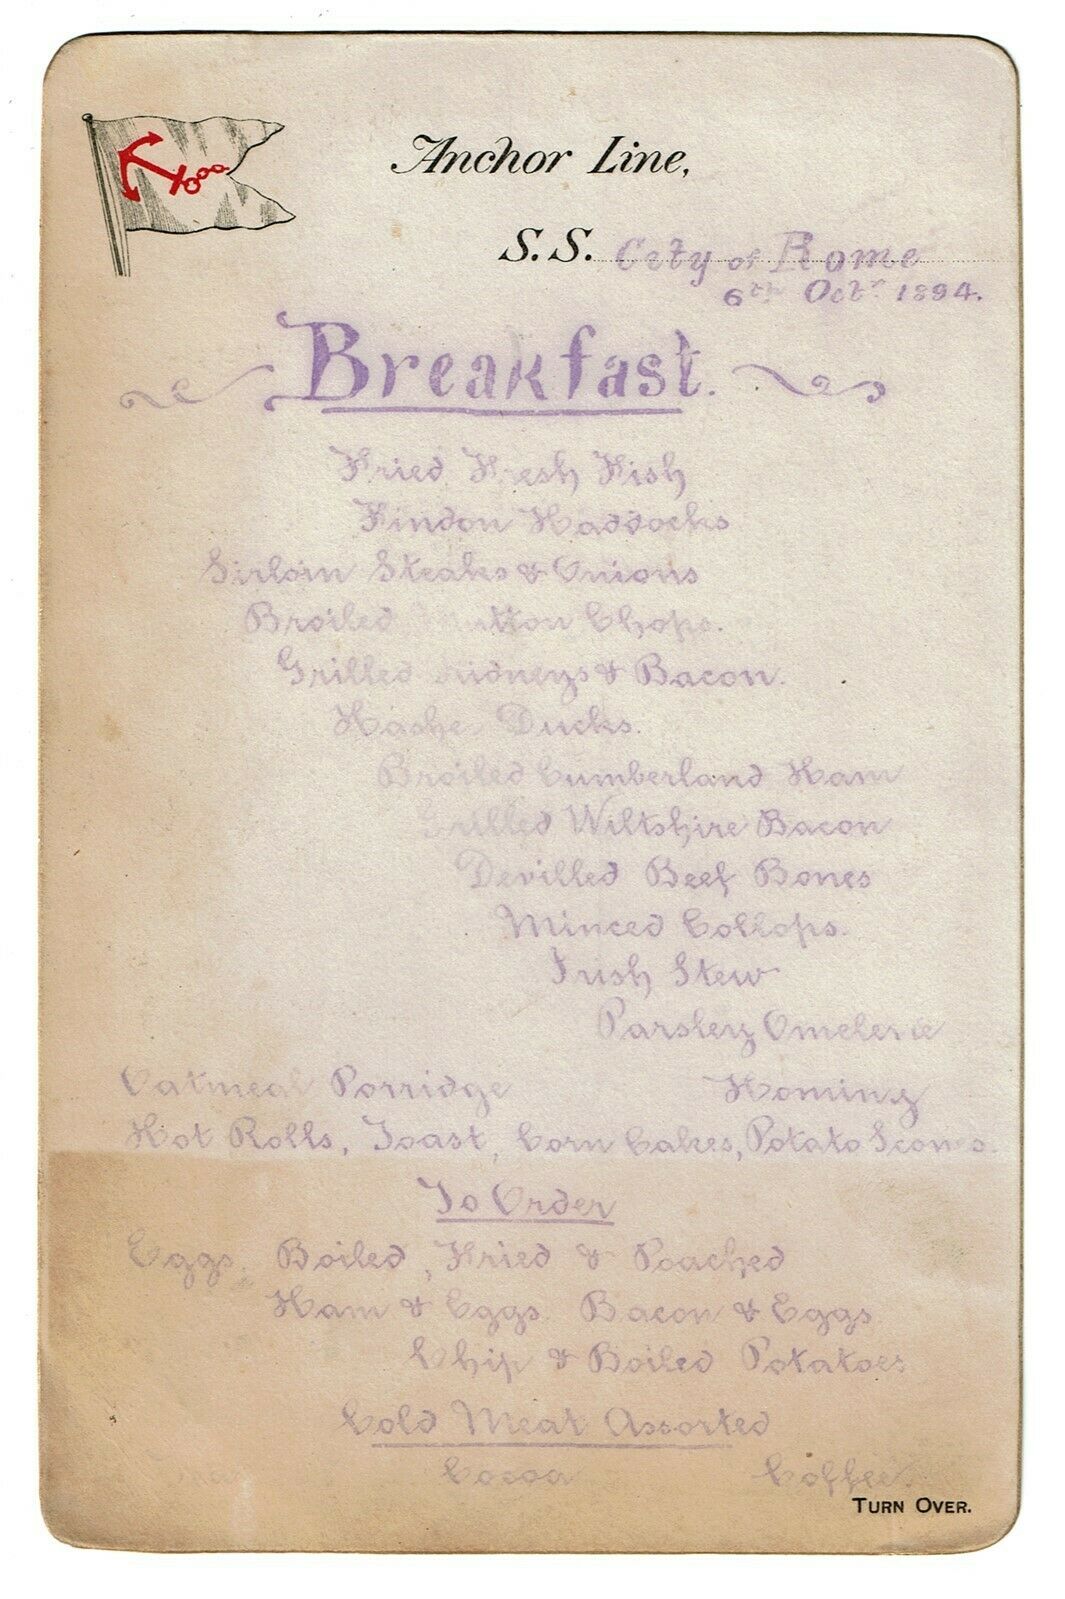 Anchor Line,
S.S. City of Rome
6th Octr 1894.
Breakfast.
Fried Fresh Fish
Findon Haddocks
Sirloin Steaks & Onions
Broiled Mutton Chops.
Grilled Kidneys & Bacon.
Hashe Ducks.
Broiled Cumberland Ham
Grilled Wiltshire Bacon
Devilled Beef Bones
Minced Collops.
Irish Stew
Parsley
Oatmeal Porridge Hominy
Hot Rolls, Toast, Corn Cakes, Potato Scones.
To Order
Eggs. Boiled, Fried & Poached
Ham & Eggs. Bacon & Eggs
Chip & Boiled Potatoes
Cold Meat Assorted
Cocoa Coffee.
TURN OVER.